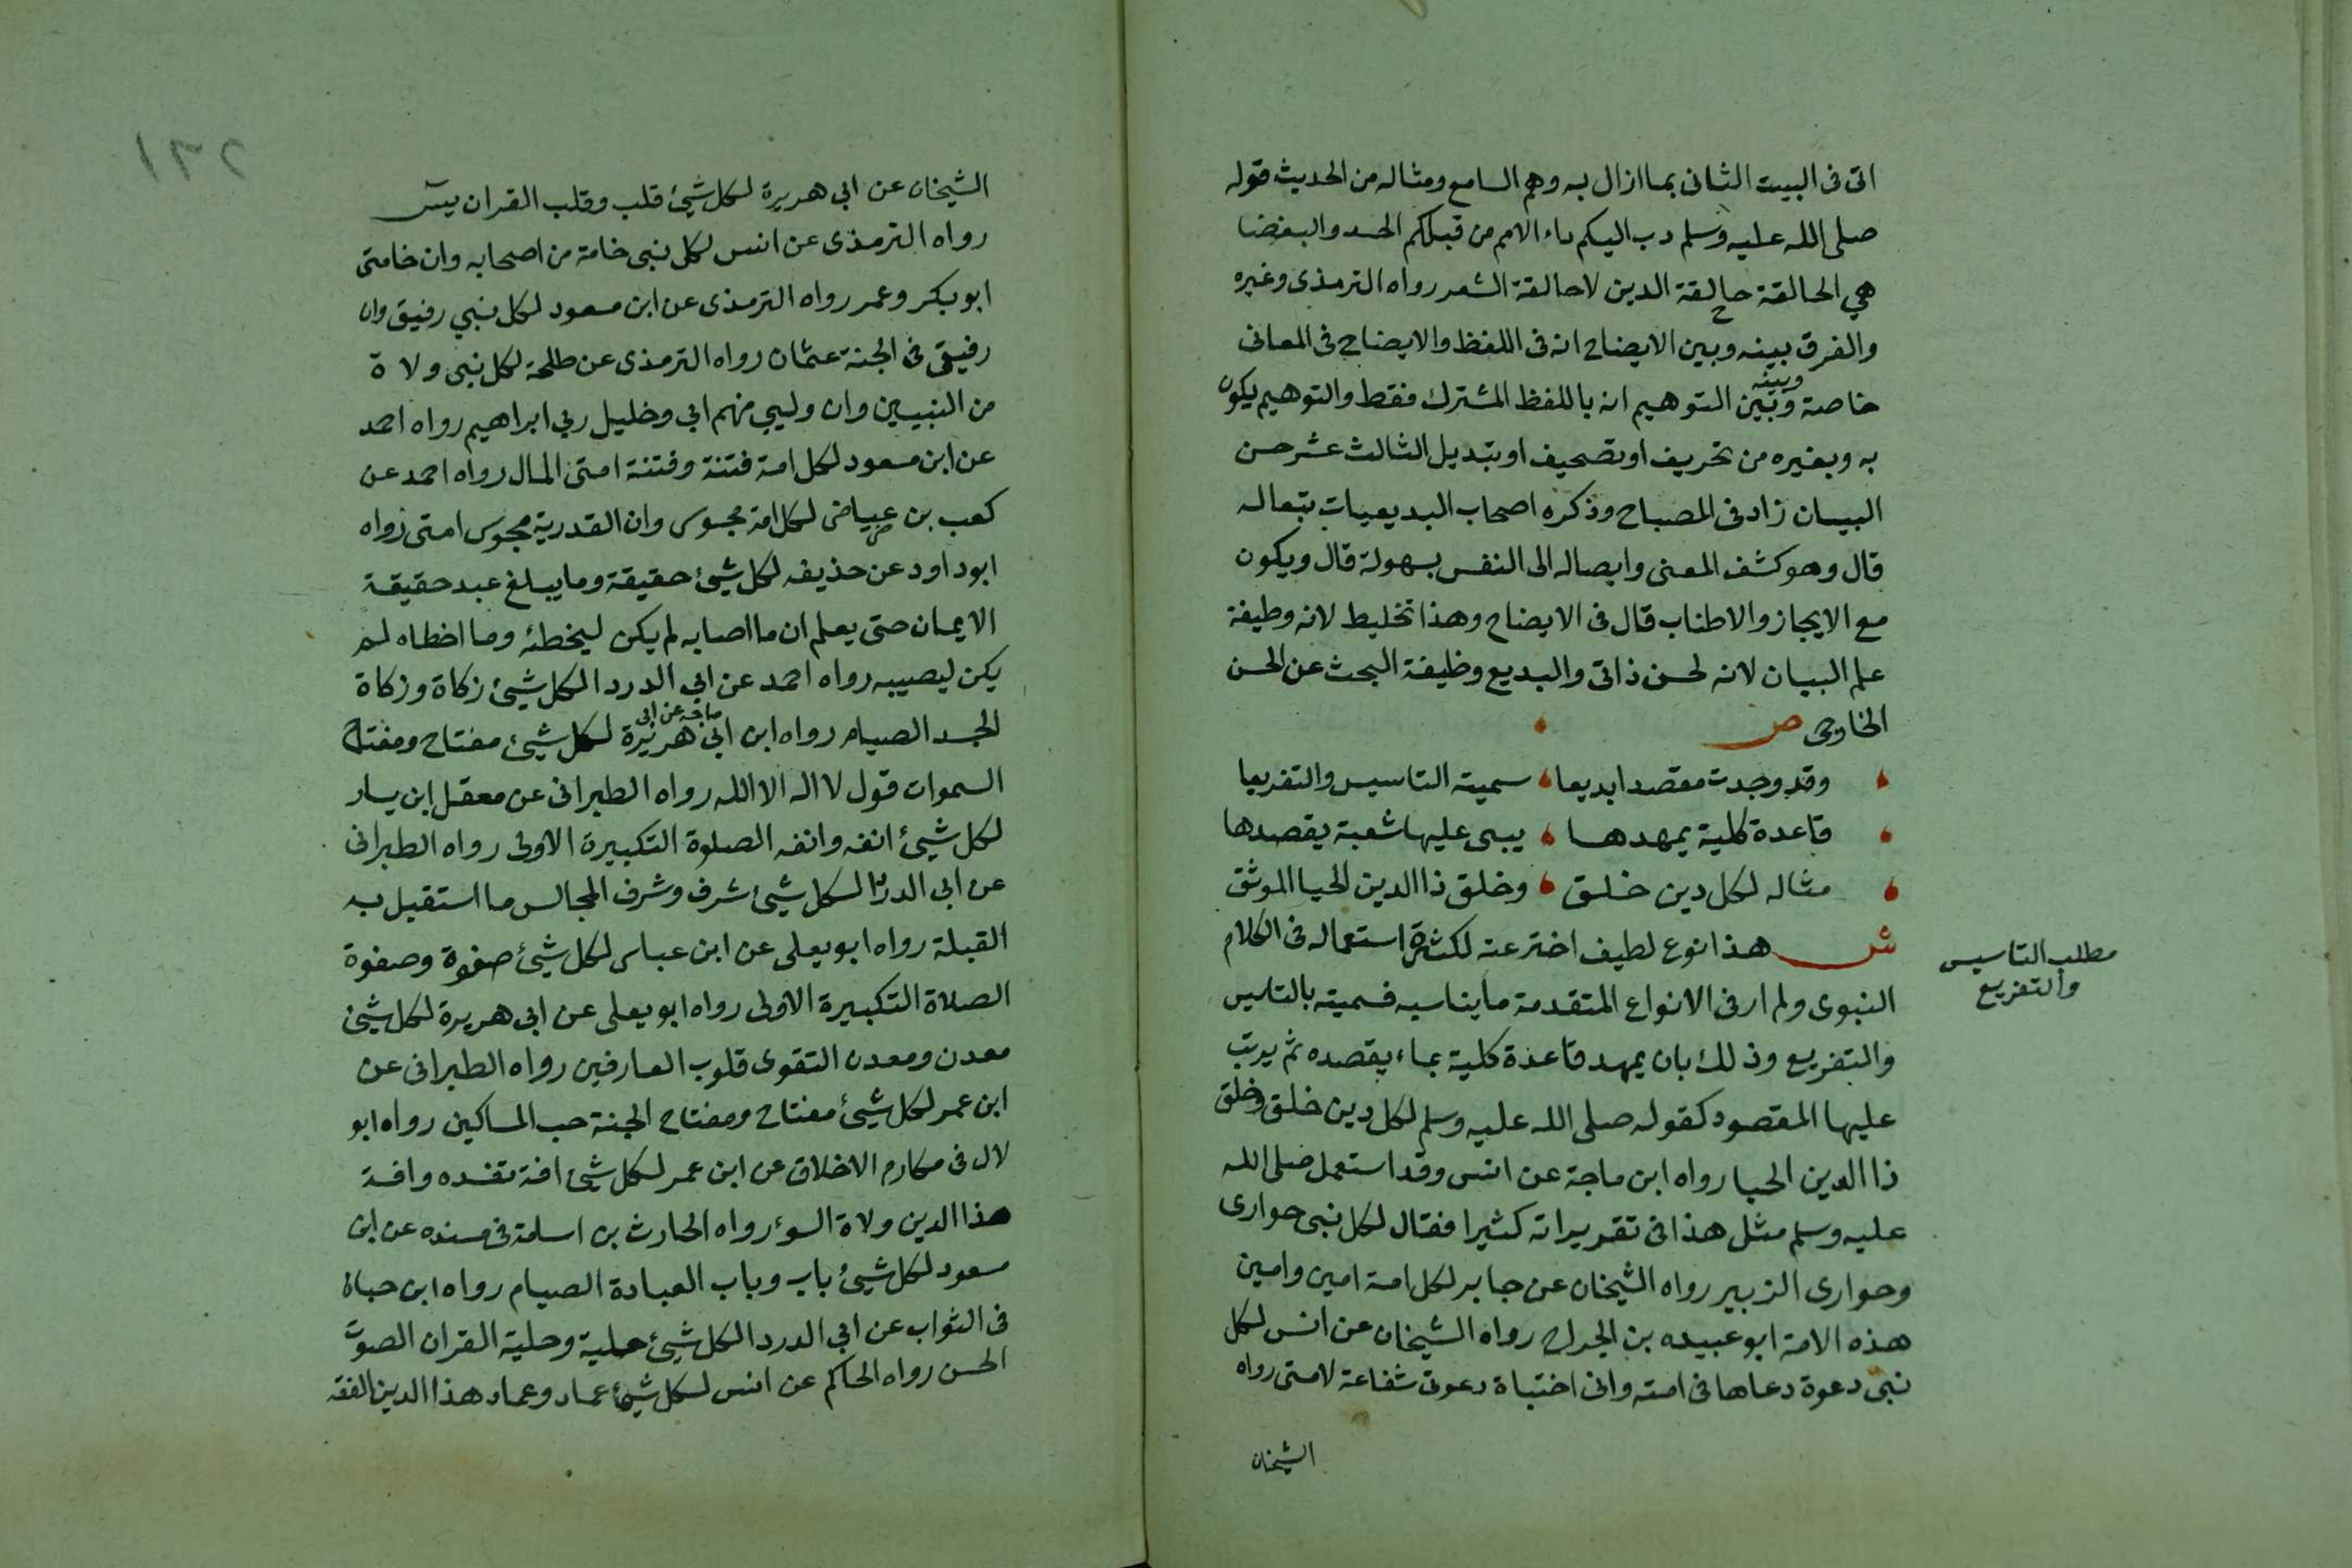 اتى فى البيت الثانى بما ازال به وهم السامع ومثاله من الحديث قوله
صلى الله عليه وسلم دب اليكم داء الامم من قبلكم الحسد والبغضا
هي الحالقة حالقة الدين لا حالقة الشعر رواه الترمذى وغيره
والفرق بينه وبين الايضاح انه فى اللفظ والايضاح فى المعانى
خاصة وبينه وبين التوهيم انه باللفظ المشترك فقط والتوهيم يكون
به وبغيره من تحريف او تصحيف او تبديل الثالث عشر حسن
البيان زاد فى المصباح وذكره اصحاب البديعيات تبعا له
قال وهو كشف المعنى وايصاله الى النفس بسهولة قال ويكون
مع الايجاز والاطناب قال فى الايضاح وهذا تخليط لانه وظيفة
علم البيان لانه لحسن ذاتى والبديع وظيفة البحث عن الحسن
الخارجى ص
وقد وجدت مقصدا بديعا سميته التاسيس والتفريعا
قاعدة كلية يمهدها يبنى عليها شعبة يقصدها
مثاله لكل دين خلق وخلق ذا الدين الحيا الموثق
ش هذا نوع لطيف اخترعته لكثرة استعماله فى الكلام
مطلب التاسيس
والتفريع
النبوى ولم ار فى الانواع المتقدمة ما يناسبه فسميته بالتاسيس
والتفريع وذلك بان يمهد قاعدة كلية بماء يقصده ثم يرتب
عليها المقصود كقوله صلى الله عليه وسلم لكل دين خلق وخلق
ذا الدين الحيا رواه ابن ماجة عن انس وقد استعمل صلى الله
عليه وسلم مثل هذا فى تقريراته كثيرا فقال لكل نبى حوارى
وحوارى الزبير رواه الشيخان عن جابر لكل امة امين وامين
هذه الامة ابو عبيده بن الجراح رواه الشيخان عن انس لكل
نبى دعوة دعاها فى امته وانى اختباة دعوتى شفاعة لامتى رواه
الشيخان
٢٦١
الشيخان عن ابي هريرة لكل شيئ قلب وقلب القران يس
رواه الترمذى عن انس لكل نبى خامة من اصحابه وان خامتى
ابو بكر وعمر رواه الترمذى عن ابن مسعود لكل نبي رفيق وان
رفيقى فى الجنة عثمان رواه الترمذى عن طلحة لكل نبى ولاة
من النبيين وان وليي منهم ابي وخليل ربي ابراهيم رواه احمد
عن ابن مسعود لكل امة فتنة وفتنة امتى المال رواه احمد عن
كعب بن عياض لكل امة مجوس وان القدرية مجوس امتى رواه
ابو داود عن حذيفه لكل شيئ حقيقة وما يبلغ عبد حقيقة
الايمان حتى يعلم ان ما اصابه لم يكن ليخطئه وما اخطاه لم
يكن ليصيبه رواه احمد عن ابي الدردا لكل شيئ زكاة وزكاة
الجسد الصيام رواه ابن ماجه عن ابى ابي هريرة لكل شيئ مفتاح ومفتاح
السموات قول لا اله الا الله رواه الطبرانى عن معقل ابن يسار
لكل شيئ انفه وانفه الصلوة التكبيرة الاولى رواه الطبرانى
عن ابى الدردا لكل شيئ شرف وشرف المجالس ما استقبل به
القبلة رواه ابو يعلى عن ابن عباس لكل شيئ صفوة وصفوة
الصلاة التكبيرة الاولى رواه ابو يعلى عن ابى هريرة لكل شيئ
معدن ومعدن التقوى قلوب العارفين رواه الطبرانى عن
ابن عمر لكل شيئ مفتاح ومفتاح الجنة حب المساكين رواه ابو
لال فى مكارم الاخلاق عن ابن عمر لكل شيئ افة تفسده وافة
هذا الدين ولاة السوء رواه الحارث بن اسامة فى مسنده عن ابن
مسعود لكل شيئ باب وباب العبادة الصيام رواه ابن حبان
فى الثواب عن ابي الدردا لكل شيئ حلية وحلية القران الصوت
الحسن رواه الحاكم عن انس لكل شيئ عماد وعماد هذا الدين الفقه